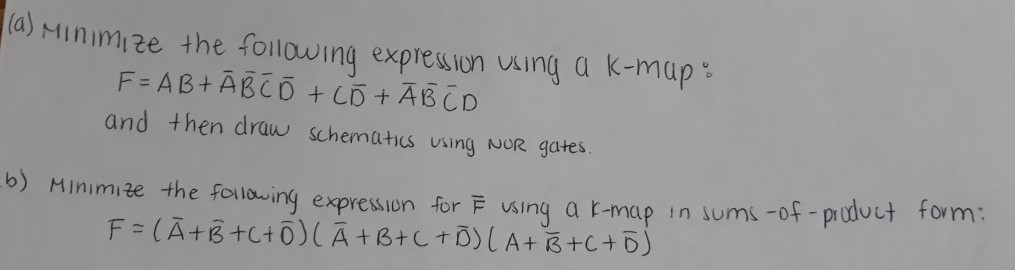 (a) Minimize the following expression using a k-map:
F = AB + ĀB̄C̄D̄ + CD̄ + ĀB̄C̄D
and then draw schematics using NOR gates.
b) Minimize the following expression for F̄ using a k-map in sums-of-product form:
F = (Ā+B̄+C+D̄)(Ā+B+C+D̄)(A+B̄+C+D̄)